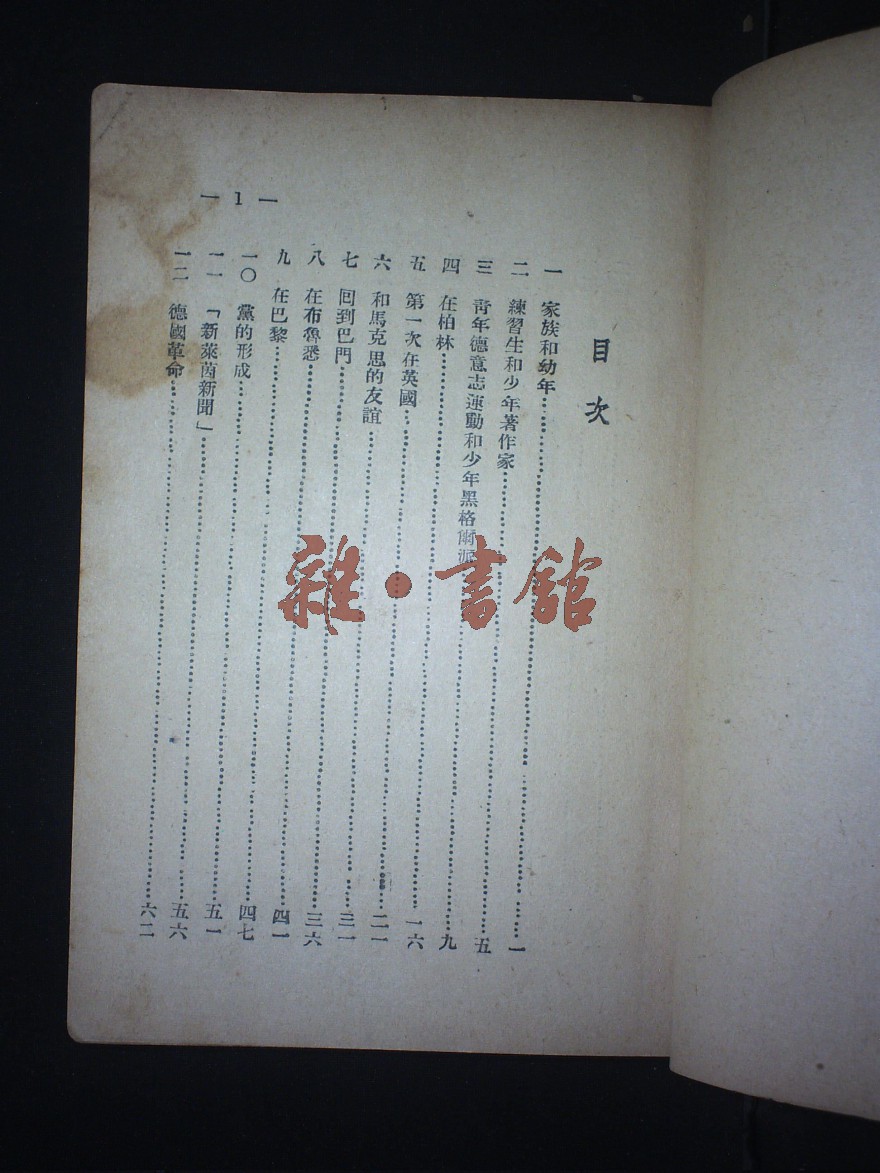 目次
一 家族和幼年……一
二 練習生和少年著作家……五
三 青年德意志運動和少年黑格爾派……九
四 在柏林……一六
五 第一次在英國……二一
六 和馬克思的友誼……三一
七 回到巴門……三六
八 在布魯悉……四一
九 在巴黎……四七
一〇 黨的形成……五一
一一 「新萊茵新聞」……五六
一二 德國革命……六二
— 1 —
雜·書館